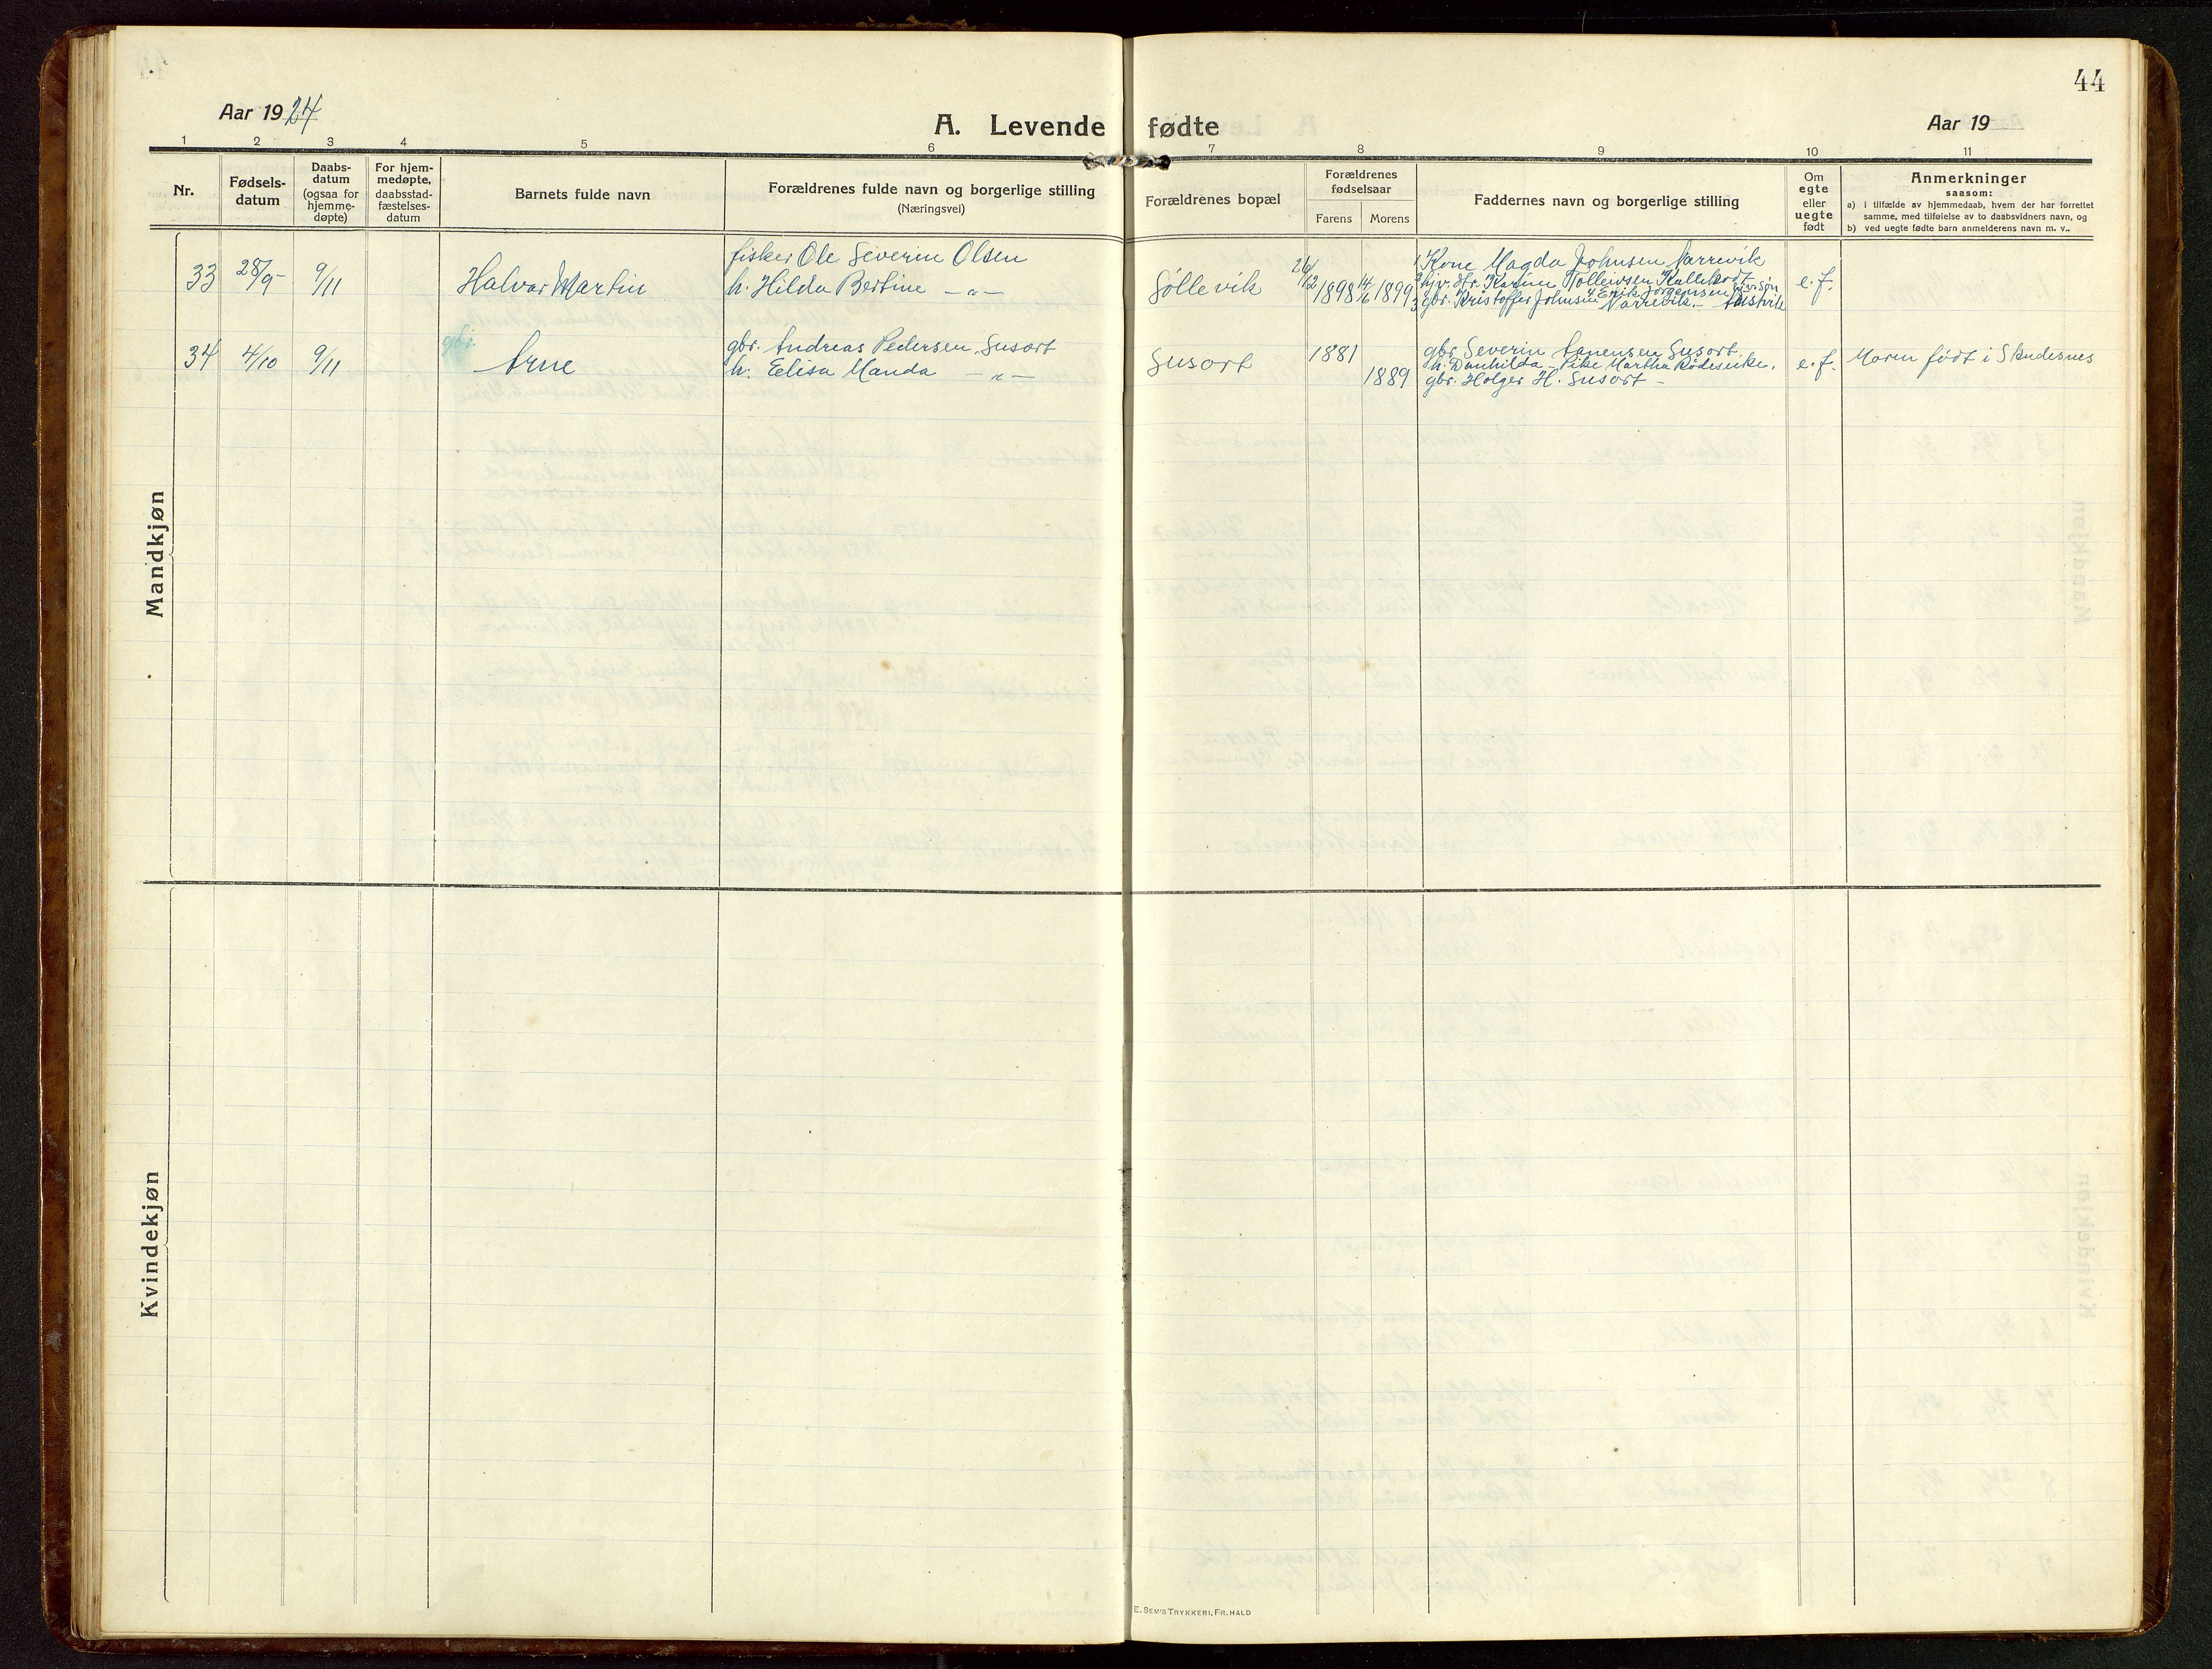 44
Aar 1924
A. Levende fødte
Aar 19
1 2 3 4 5 6 7 8 9 10 11
Nr.
Fødsels-
datum
Daabs-
datum
(ogsaa for
hjemme-
døpte)
For hjem-
medøpte,
daabsstad-
fæstelses-
datum
Barnets fulde navn
Forældrenes fulde navn og borgerlige stilling
(Næringsvei)
Forældrenes bopæl
Forældrenes
fødselsaar
Farens Morens
Faddernes navn og borgerlige stilling
Om
egte
eller
uegte
født
Anmerkninger
saasom:
a) i tilfælde av hjemmedaab, hvem der har forrettet
samme, med tilføielse av to daabsvidners navn, og
b) ved uegte fødte barn anmelderens navn m. v..
Mandkjøn
33 28/9- 9/11 Halvar Martin
fisker Ole Severin Olsen
h. Hilda Bertine —"—
Søllevik
26/12 1898 14/6 1899
1 Kone Magda Johnsen Narrevik
2 hjv. dtr. Karine Tolleivsen
3 gbr. Kristoffer Johnsen Narrevik. 4 Erik Jørgensen
e. f.
34 4/10 9/11 gbr. Arne
gbr. Andreas Pedersen, Susort
h. Elisa Manda —"—
Susort
1881
1889
gbr. Severin Susort.
h. Danhilda - Pike Martha
gbr. Holger H. Susort -
e. f.
Moren født i Skudesnes
Kvindekjøn
E. SEM'S TRYKKERI, FR. HALD